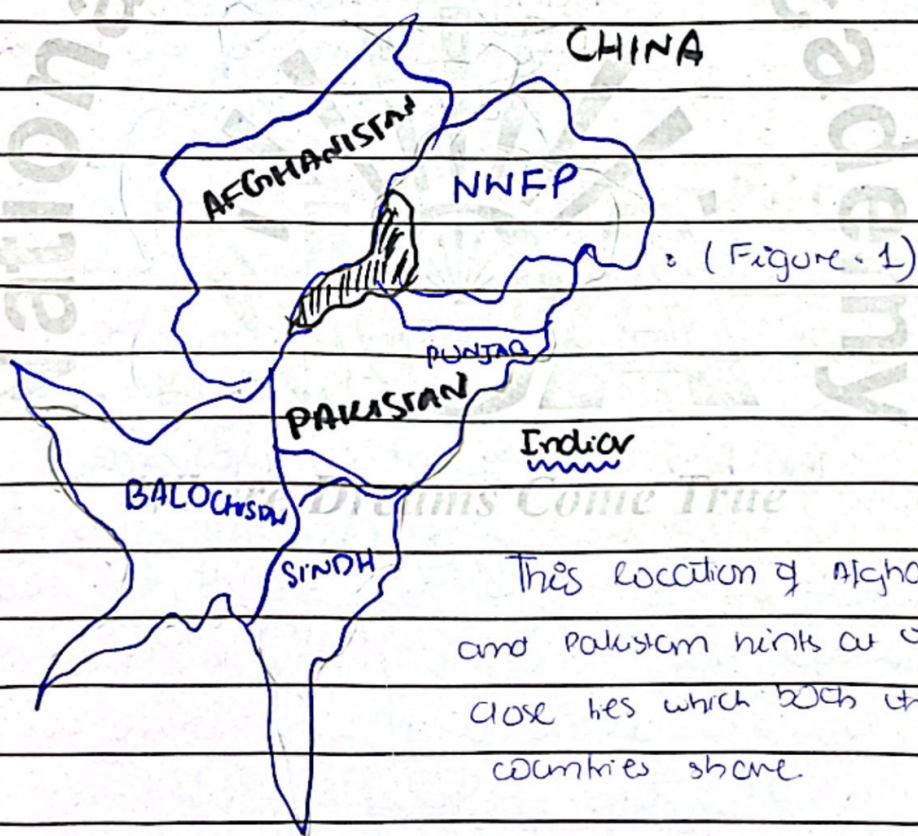 CHINA
AFGHANISTAN
NWFP
: (Figure. 1)
PUNJAB
PAKISTAN
Indiar
BALOCHISTAN
Where Dreams Come True
SINDH
This location of Afgha
and Pakistan hints at
close ties which both
countries share
ational
cademy